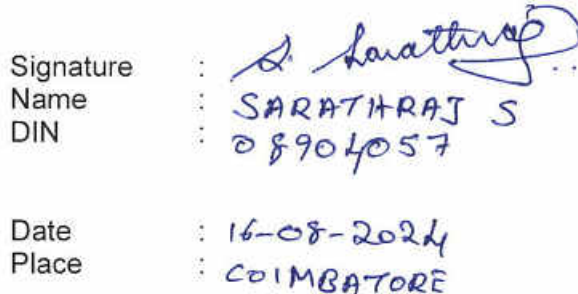 Signature : S. Sarathraj
Name : SARATHRAJ S
DIN : 08904057
Date : 16-08-2024
Place : COIMBATORE